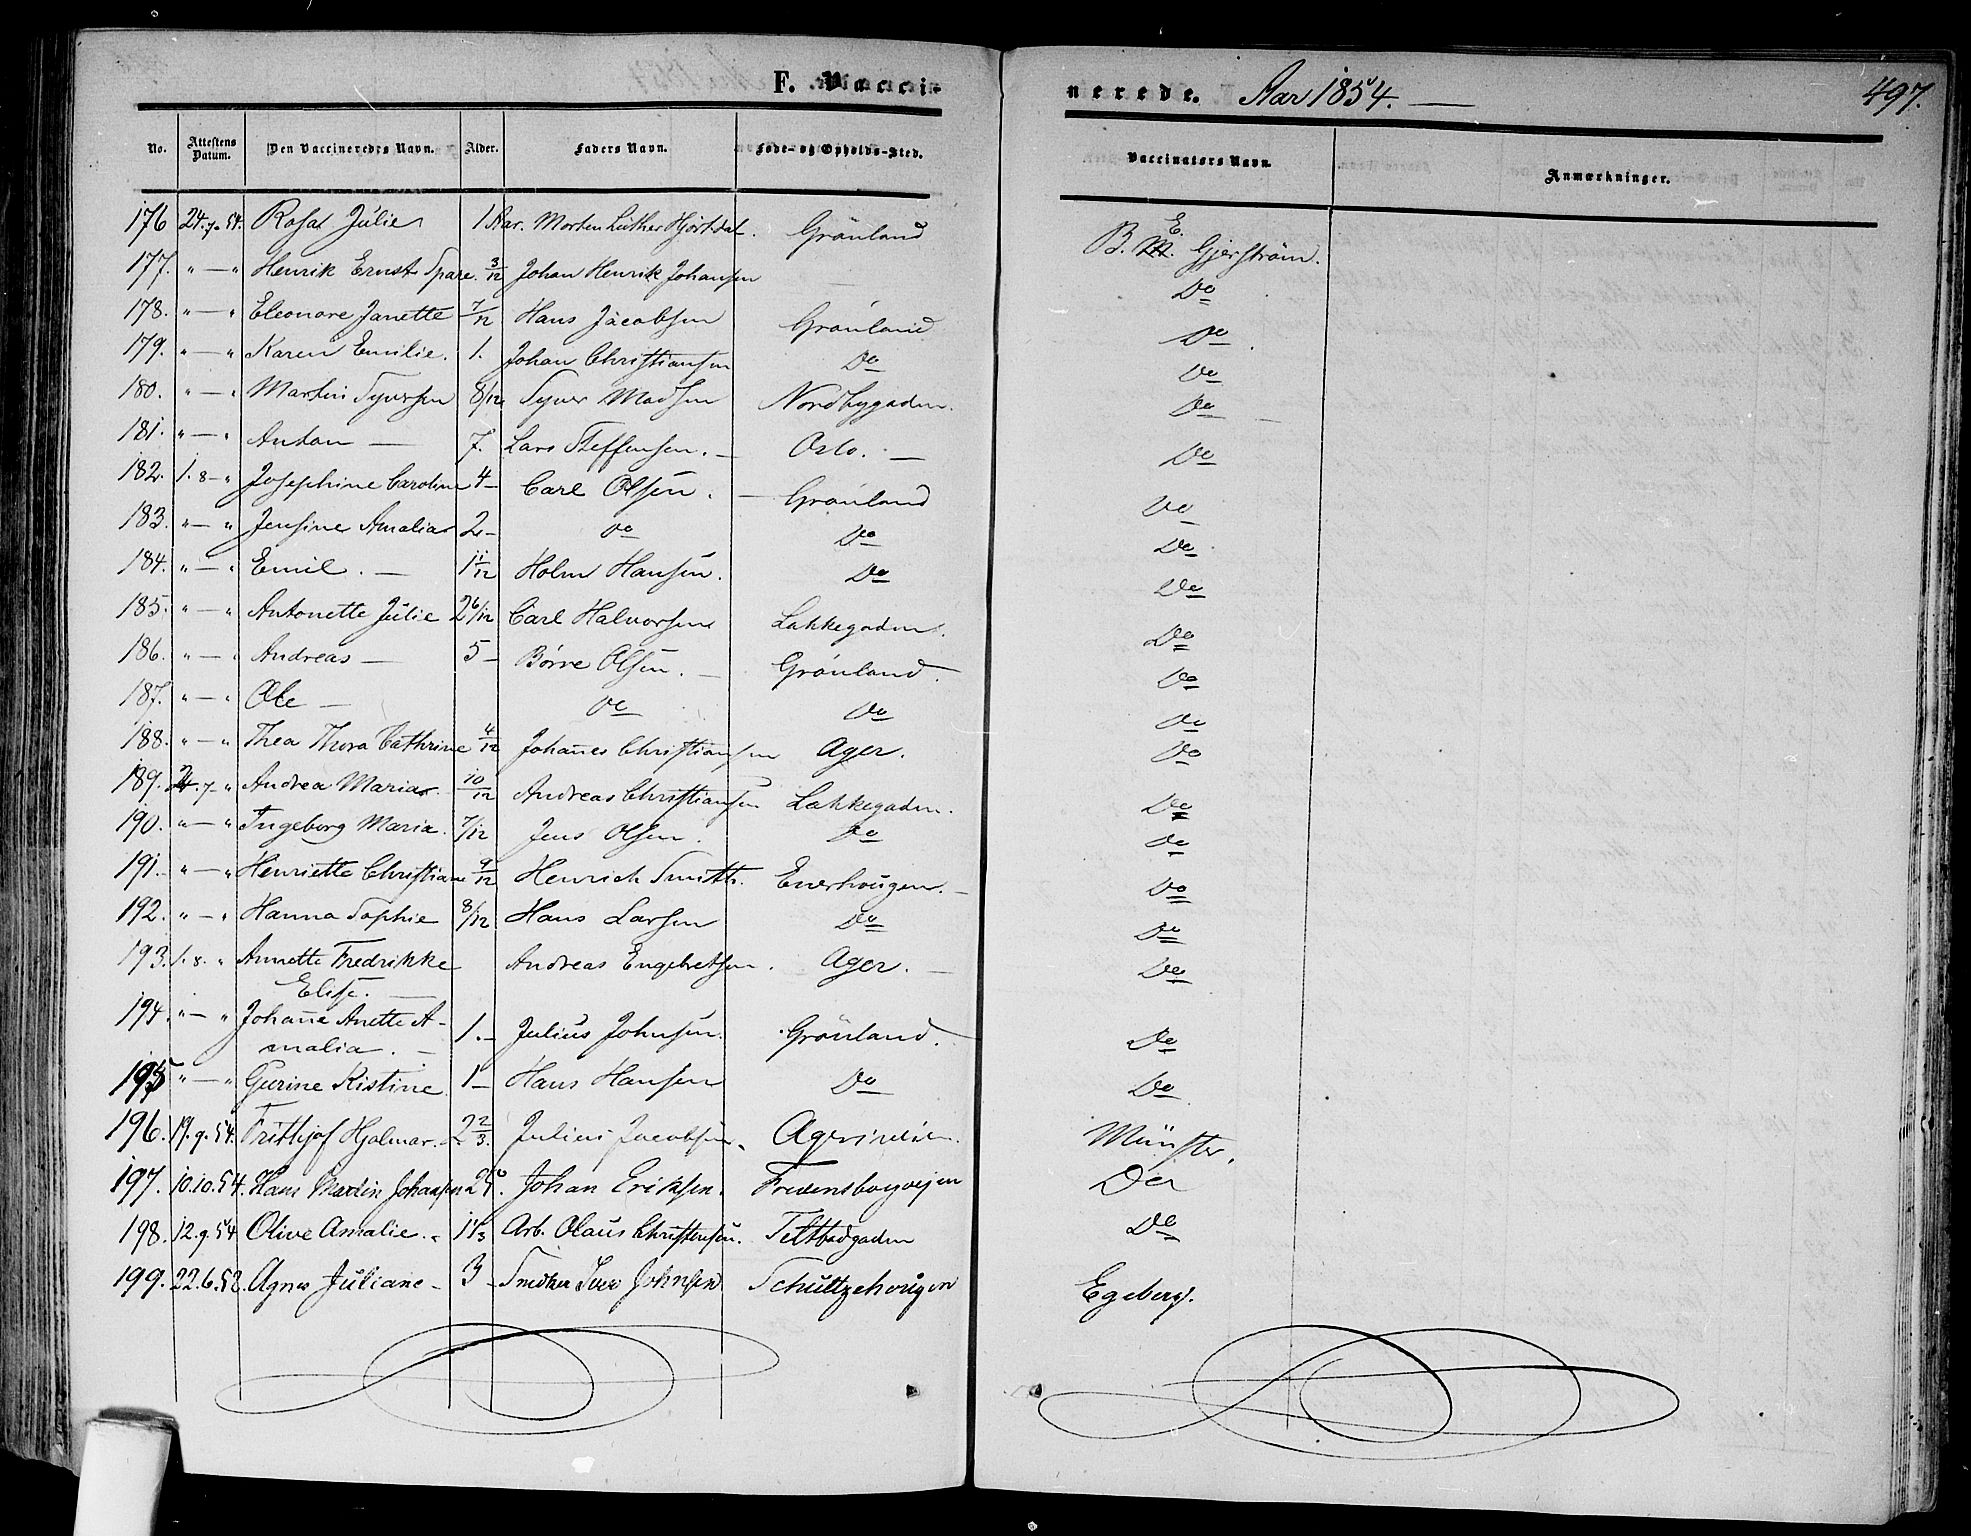 F. Vacci-
nerede. Aar 1854. —
497.
No. Attestens Datum. Den Vaccineredes Navn. Alder. Faders Navn. Føde- og Opholds-Sted. Vaccinators Navn. Anmærkninger.
176 24.7.54. Rosa Julie 1 Aar. Morten Luther Hjortdal. Grønland B. E. Gjerstrøm.
177. " — " Henrik Ernst Spare. 3/12 Johan Henrik Johansen — Do
178. " — " Eleonore Janette 7/12 Hans Jacobsen Grønland Do
179. " — " Karen Emilie. 1. Johan Christiansen Do Do
180. " — " Martin Syversen 8/12 Syver Madsen Nordbygaden. Do
181. " — " Anton — 7. Lars Steffensen. — Oslo. — Do
182. 1.8 — " Josephine Caroline 4 — Carl Olsen. — Grønland Do
183. " — " Jensine Amalia 2 — Do Do Do
184. " — " Emil. — 1 11/12 Holm Hansen. Do Do
185. " — " Antonette Julie 2 6/12 Carl Halvorsen Lakkegaden. Do
186. " — " Andreas — 5 — Børre Olsen. — Grønland. Do
187. " — " Ole — Do Do Do
188. " — " Thea Thora Cathrine 4/12 Johannes Christiansen Ager. Do
189. 24.7 " Andrea Maria. 10/12 Andreas Christiansen Lakkegaden. Do
190. " — " Ingeborg Maria. 7/12 Jens Olsen. Do Do
191. " — " Henriette Christiane 9/12 Henrich Smith. Enerhougen. — Do
192. " — " Hanna Sophie 8/12 Hans Larsen Do Do
193. 1.8. " Annette Fredrikke Andreas Engebretsen. Ager. — Do
Elise. —
194. " — " Johanne Anette A- 1. — Julius Johnsen. Grönland. Do
malia. —
195 " — " Gurine Kistine 1 — Hans Hansen Do Do
196. 19.9.54. Frithjof Hjalmar. 2 2/3. Julius Jacobsen. Münster.
197. 10.10.54. Hans Martin Johansen Johan Eriksen. Fredensborgveien Do
198. 12.9.54 Olive Amalie. Arb. Olaus Christensen. Teltbodgaden Do
199. 22.6.52. Agnes Juliane — 3 — Snedker Iver Johnsen Schultzehougen Egeberg.